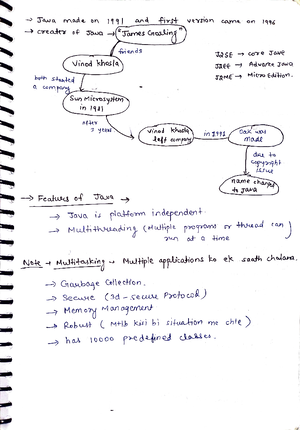 → Java made on 1991 and first version came on 1996
→ creater of Java → "James Gosling"
friends
J2SE → core Java
J2EE → Advance Java
J2ME → Micro Edition.
Vinod khosla
both started
a company
Sun Microsystem
in 1981
after
2 years
Vinod khosla
left company
in 1991
OAK was
made
due to
copyright
issue
name changed
to Java
→ Features of Java →
→ Java is platform independent
→ Multithreading (Multiple programs or thread can
run at a time
Note → Multitasking → Multiple applications ko ek saath chalana.
→ Garbage Collection.
→ Secure (3d-secure Protocol)
→ Memory Management
→ Robust (Mtlb kisi bi situation me chle)
→ has 10000 predefined classes.